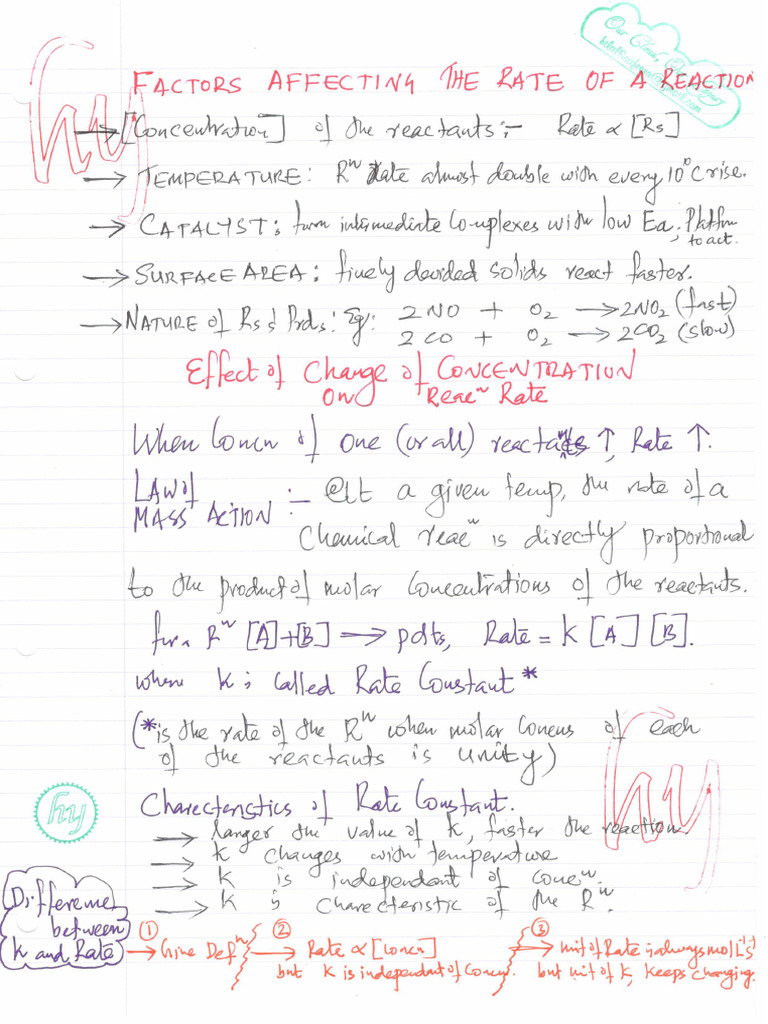 Our Cloud
hy
FACTORS AFFECTING THE RATE OF A REACTION
→ [Concentration] of the reactants:- Rate ∝ [Rs]
→ TEMPERATURE: Rⁿ Rate almost double with every 10°C rise.
→ CATALYST: form intermediate Complexes with low Ea, Platform to act.
→ SURFACE AREA: finely devided solids react faster.
→ NATURE of Rs & Prds: Eg: 2NO + O₂ → 2NO₂ (fast)
2CO + O₂ → 2CO₂ (slow)
Effect of Change of CONCENTRATION
ON Reacⁿ Rate
When Concn of one (or all) reactants ↑, Rate ↑.
LAW of
MASS ACTION :- At a given temp, the rate of a
Chemical reacⁿ is directly proportional
to the product of molar Concentrations of the reactants.
for a Rⁿ [A]+[B] → pdts, Rate = k [A] [B].
where k is called Rate Constant *
(*is the rate of the Rⁿ when molar Concns of each
of the reactants is unity)
hy
Charecteristics of Rate Constant.
→ larger the value of k, faster the reaction
→ k changes with temperature
→ k is independant of concⁿ.
→ k is charecteristic of the Rⁿ.
hy
Difference
between
k and Rate
① → Give Defⁿ
② → Rate ∝ [Concn]
but k is independant of Concn.
③ → Unit of Rate is always mol L⁻¹s⁻¹
but Unit of k, keeps changing.